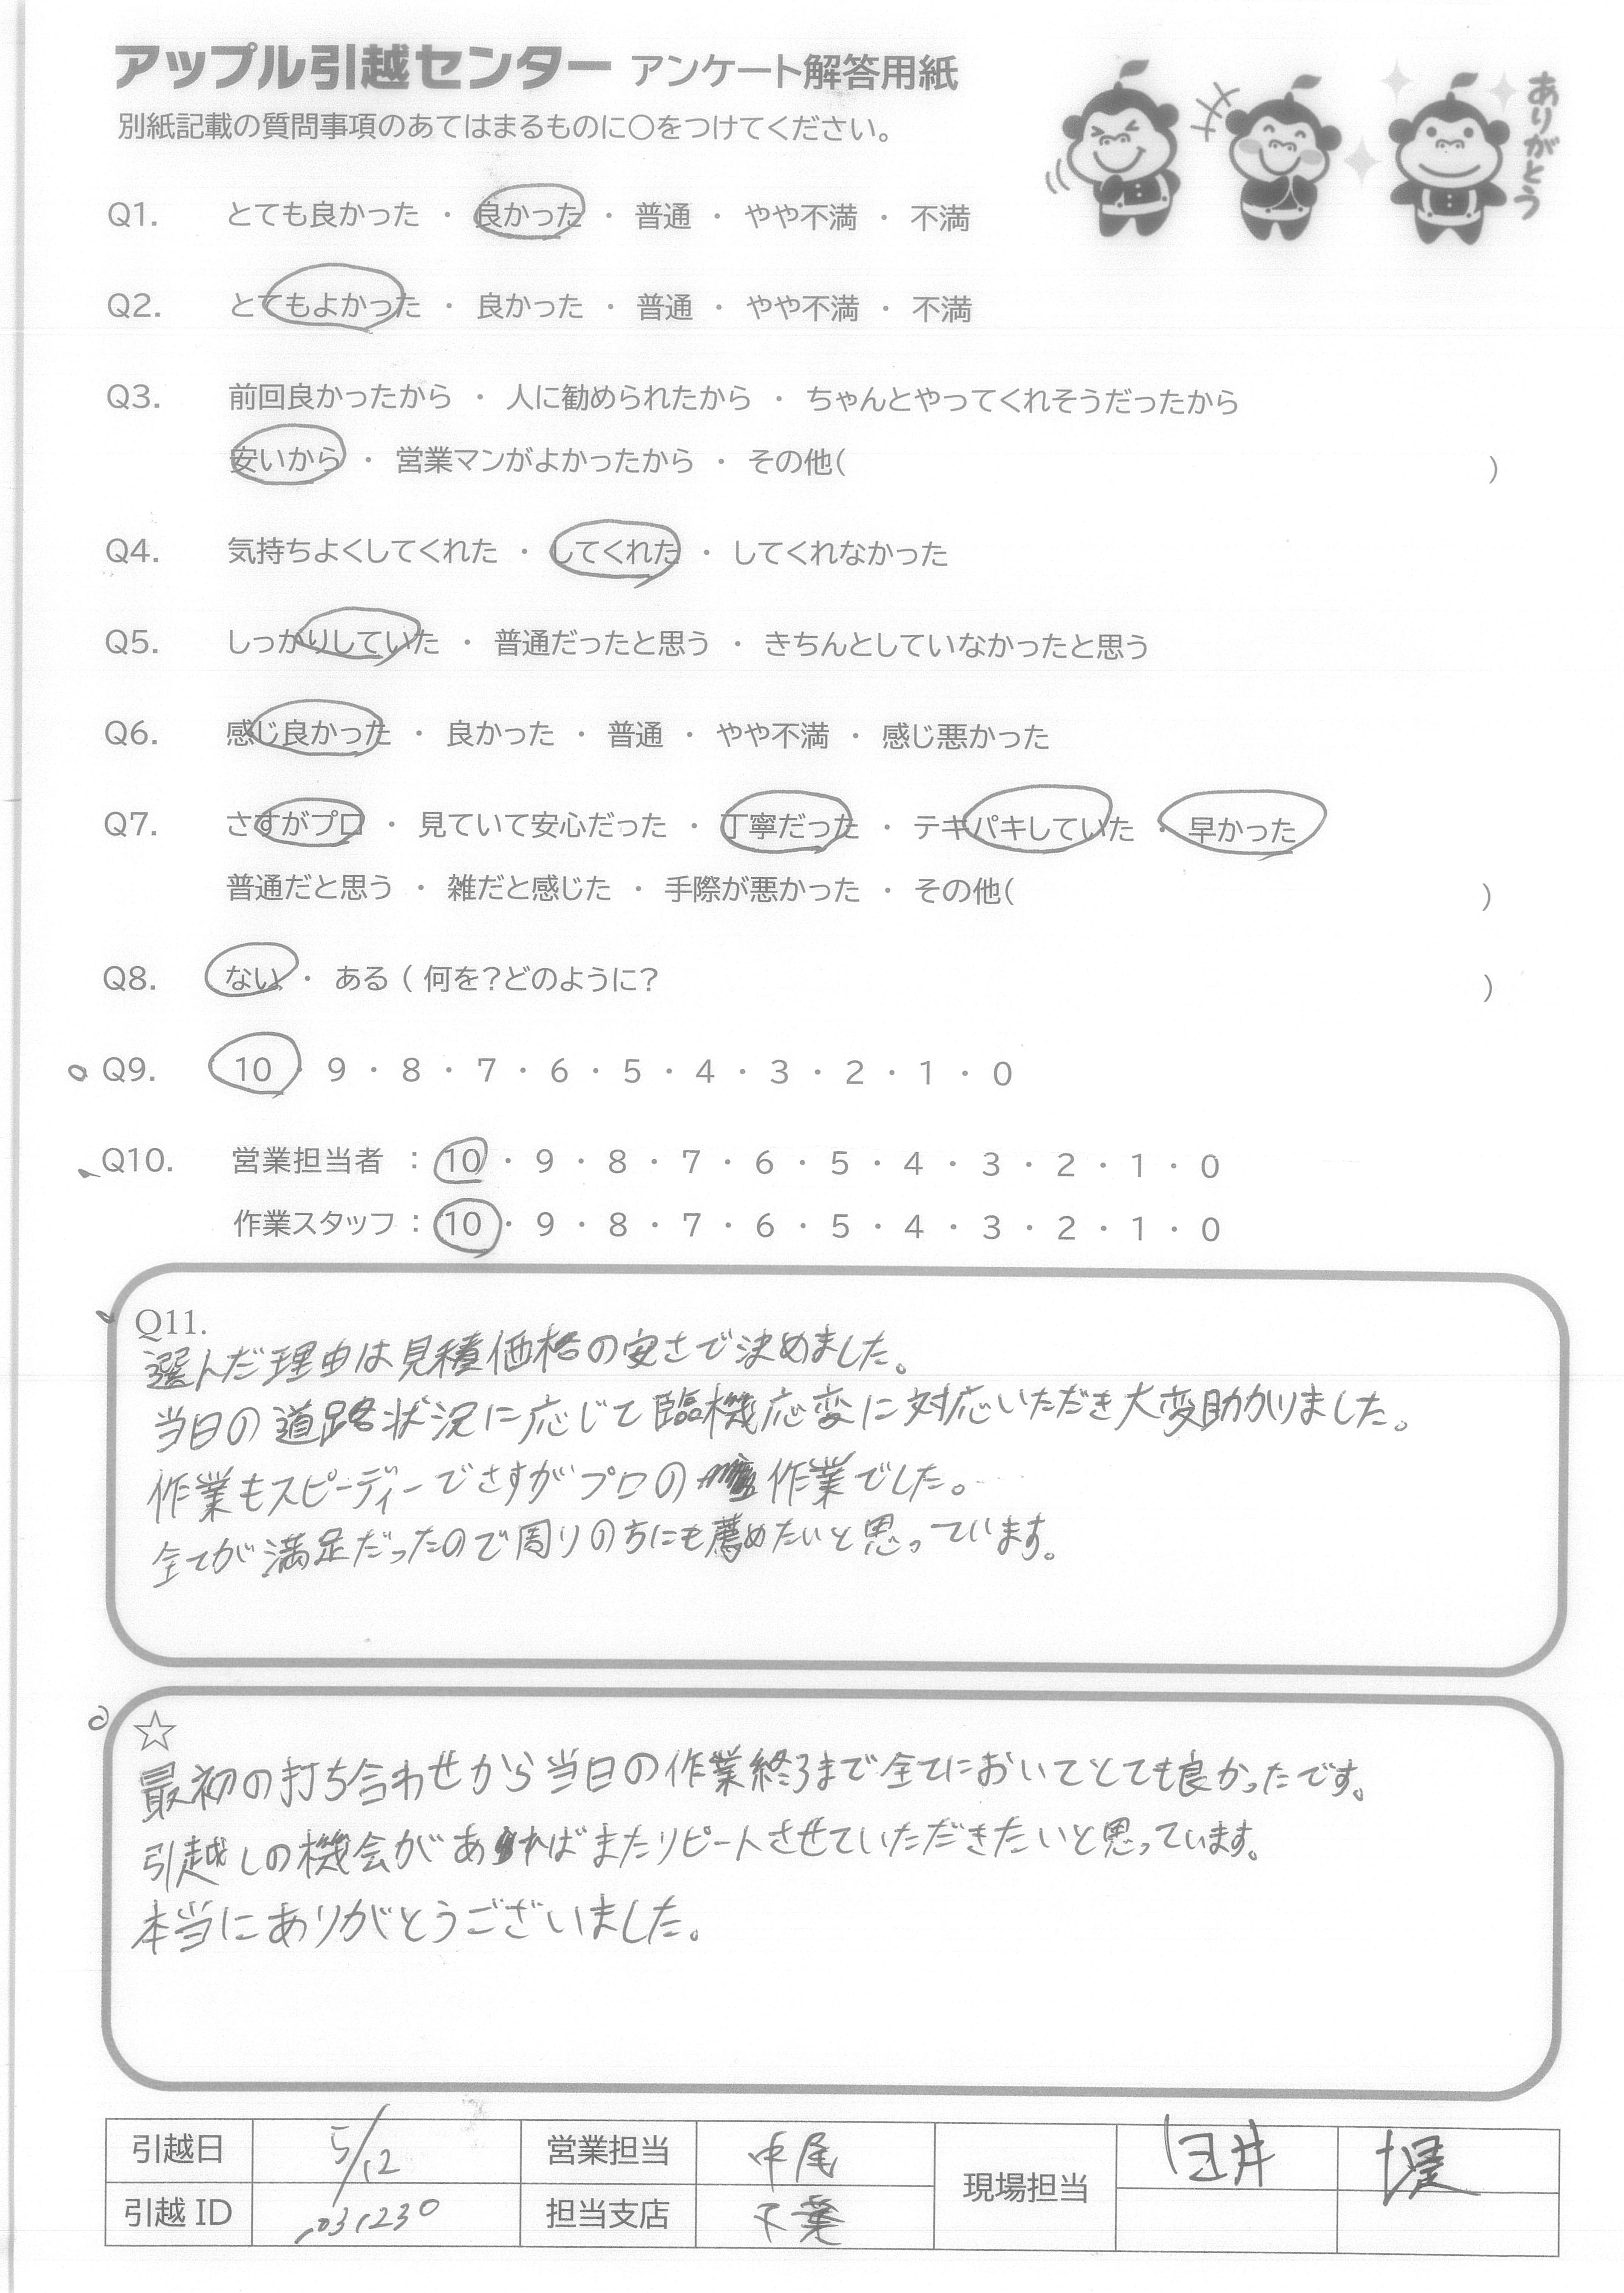 アップル引越センター アンケート解答用紙
別紙記載の質問事項のあてはまるものに〇をつけてください。
ありがとう
Q1. とても良かった ・ 良かった ・ 普通 ・ やや不満 ・ 不満
Q2. とてもよかった ・ 良かった ・ 普通 ・ やや不満 ・ 不満
Q3. 前回良かったから ・ 人に勧められたから ・ ちゃんとやってくれそうだったから
安いから ・ 営業マンがよかったから ・ その他( )
Q4. 気持ちよくしてくれた ・ してくれた ・ してくれなかった
Q5. しっかりしていた ・ 普通だったと思う ・ きちんとしていなかったと思う
Q6. 感じ良かった ・ 良かった ・ 普通 ・ やや不満 ・ 感じ悪かった
Q7. さすがプロ ・ 見ていて安心だった ・ 丁寧だった ・ テキパキしていた ・ 早かった
普通だと思う ・ 雑だと感じた ・ 手際が悪かった ・ その他( )
Q8. ない ・ ある ( 何を?どのように? )
Q9. 10 ・ 9 ・ 8 ・ 7 ・ 6 ・ 5 ・ 4 ・ 3 ・ 2 ・ 1 ・ 0
Q10. 営業担当者 : 10 ・ 9 ・ 8 ・ 7 ・ 6 ・ 5 ・ 4 ・ 3 ・ 2 ・ 1 ・ 0
作業スタッフ : 10 ・ 9 ・ 8 ・ 7 ・ 6 ・ 5 ・ 4 ・ 3 ・ 2 ・ 1 ・ 0
Q11.
選んだ理由は見積価格の安さで決めました。
当日の道路状況に応じて臨機応変に対応いただき大変助かりました。
作業もスピーディーでさすがプロの作業でした。
全てが満足だったので周りの方にも薦めたいと思っています。
☆
最初の打ち合わせから当日の作業終了まで全てにおいてとても良かったです。
引越しの機会があればまたリピートさせていただきたいと思っています。
本当にありがとうございました。
引越日 5/12 営業担当 中尾 現場担当 臼井
引越 ID 担当支店 千葉